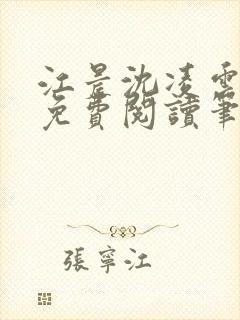 江晨沈凌雪
免費閱讀筆
張寧江